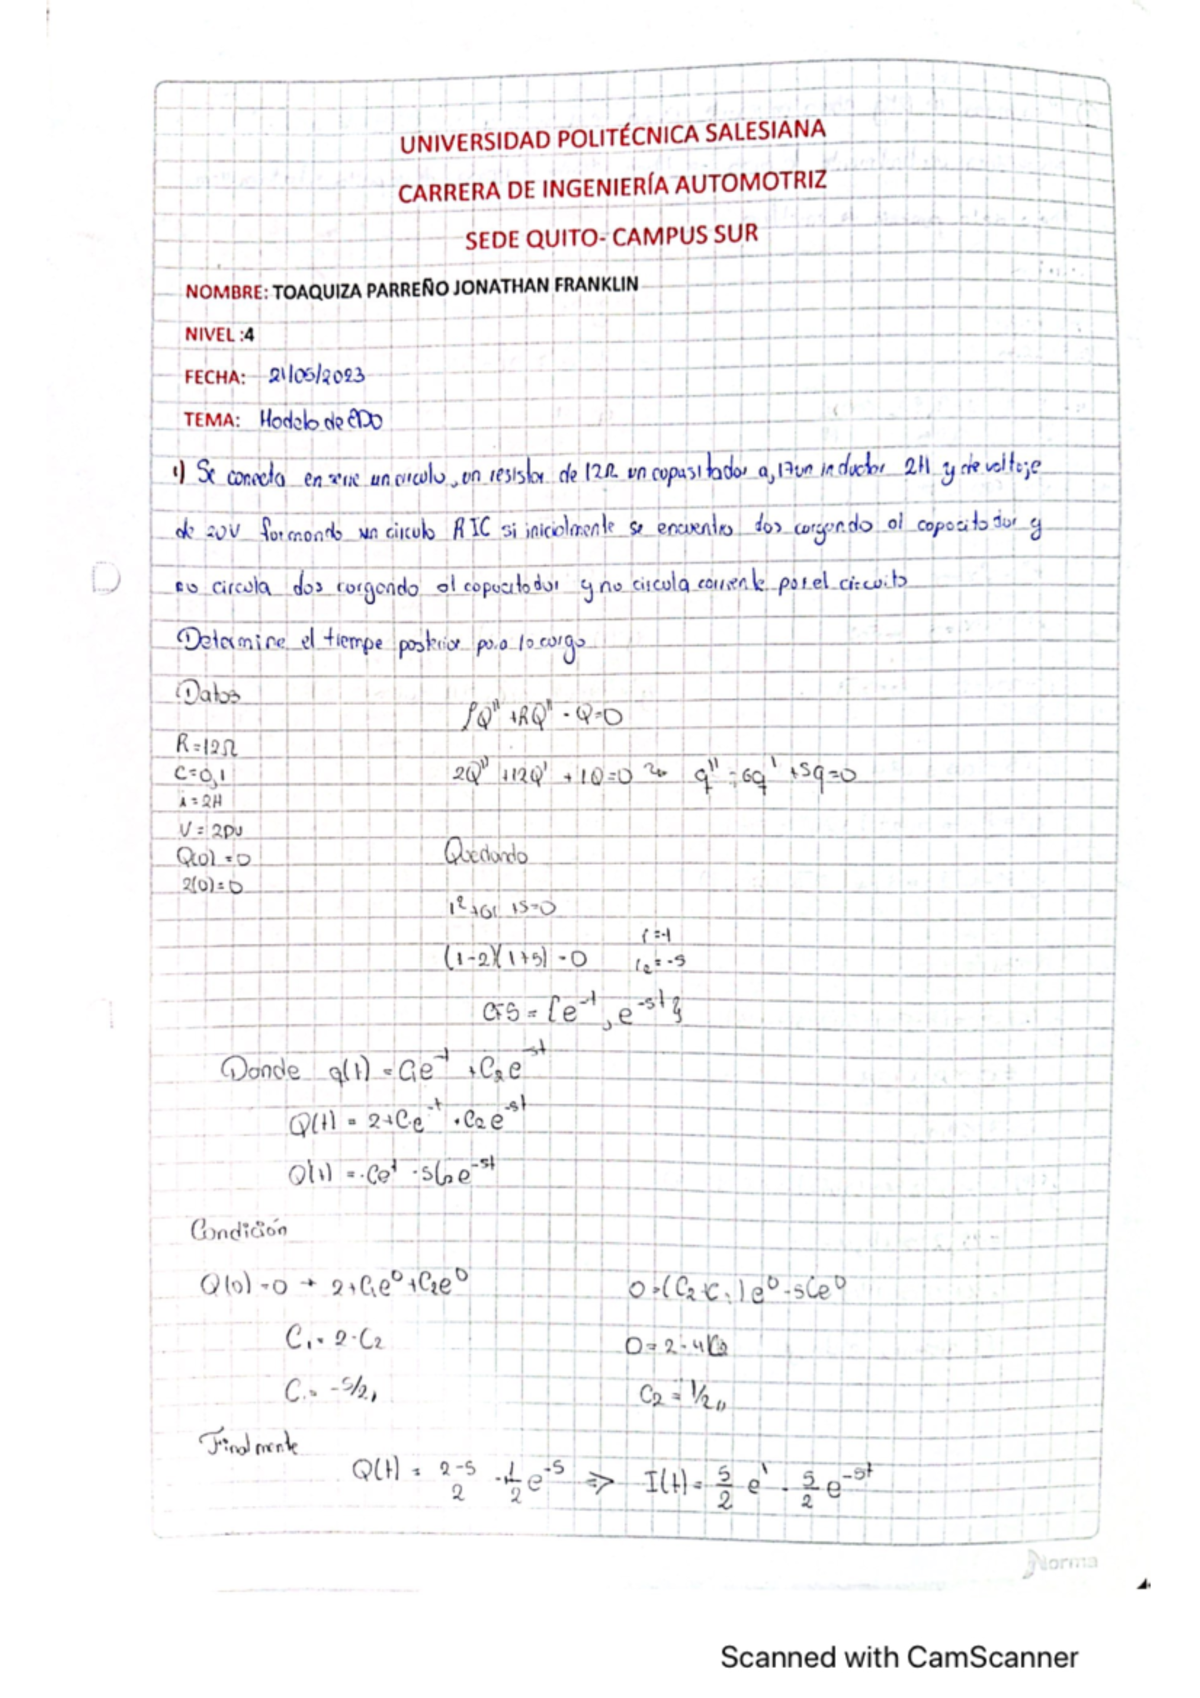 UNIVERSIDAD POLITÉCNICA SALESIANA
CARRERA DE INGENIERÍA AUTOMOTRIZ
SEDE QUITO- CAMPUS SUR
NOMBRE: TOAQUIZA PARREÑO JONATHAN FRANKLIN
NIVEL :4
FECHA: 21/05/2023
TEMA: Modelo de EDO
1) Se conecta en serie un circulo, un resistor de 12Ω un copasitador 0,1 F un inductor 2H y de voltaje
de 20V formando un circulo RIC si inicialmente se encuentra dos cargando al capacitador y
no circula dos corgando al capacitador y no circula corriente por el circuito
Determine el tiempo posterior para la carga
Datos
R=12Ω
C=0,1
i=2H
V=20V
Q(0)=0
2(0)=0
LQ'' +RQ'' - Q=0
2Q'' +12Q' + 1Q=0 q'' - 6q' +5q=0
Quedando
(1-2)(1+5) -0
r=-1
r2=-5
CFS = {e^-t, e^-5t}
Donde q(t) = C1e^-t + C2e^-5t
Q(t) = 2+C1e^-t + C2e^-5t
Q(t) = -Ce^t -5C2e^-5t
Condición
Q(0)=0 → 2+C1e^0+C2e^0
0=(C2+C1)e^0-5Ce^0
C1= 2-C2
0=2-4C2
C1= -5/2,,
C2=1/2,,
Finalmente
Q(t) = 2-5/2 + 1/2 e^-5 ⇒ I(t)= 5/2 e^t - 5/2 e^-5t
Norma
Scanned with CamScanner